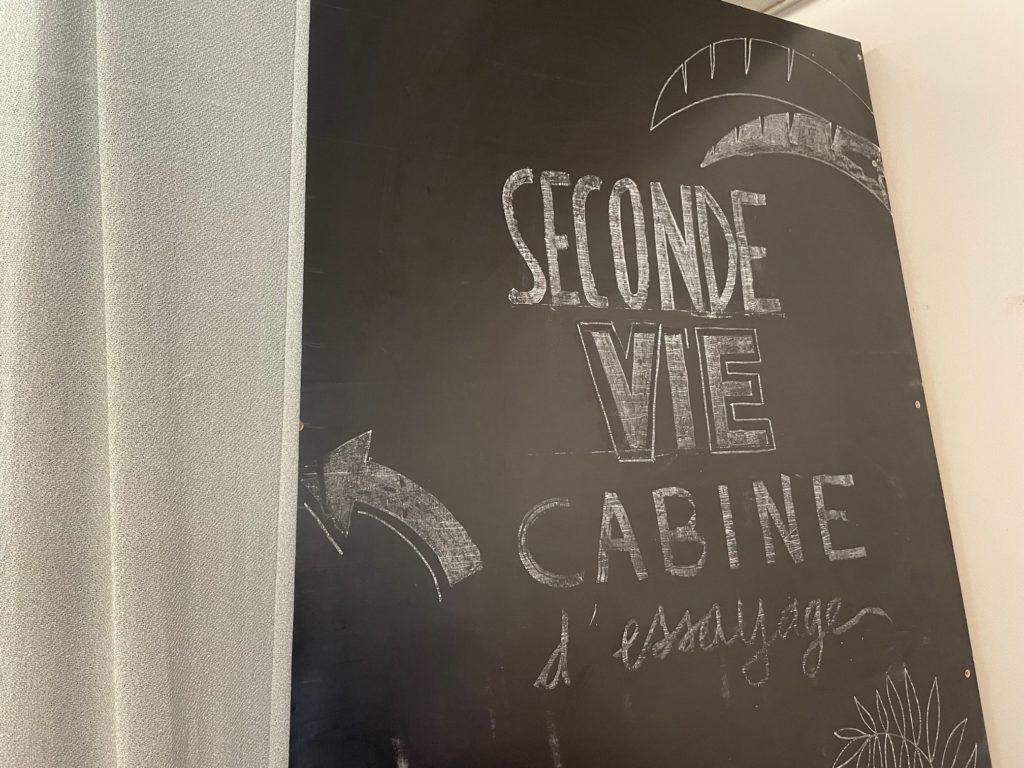 SECONDE
VIE
CABINE
d'essayage